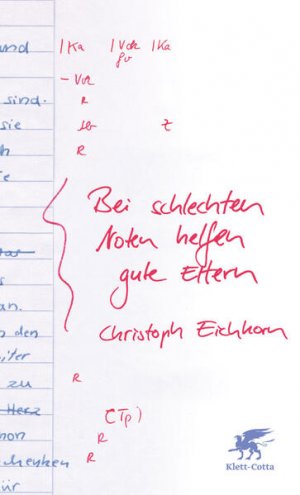 und |Ka |Vok |Ka
gr
– Vok
sind. R
sie z
R
Bei schlechten
Noten helfen
gute Eltern
Christoph Eichhorn
an.
den
zu R
Herz (Tp)
R
R
für
Klett-Cotta